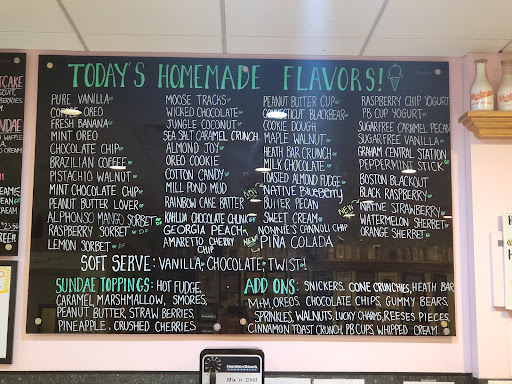 TODAY'S HOMEMADE FLAVORS!
PURE VANILLA
COFFEE OREO
FRESH BANANA
MINT OREO
CHOCOLATE CHIP
BRAZILIAN COFFEE
PISTACHIO WALNUT
MINT CHOCOLATE CHIP
PEANUT BUTTER LOVER
ALPHONSO MANGO SORBET DF
RASPBERRY SORBET DF
LEMON SORBET DF
MOOSE TRACKS
WICKED CHOCOLATE
JUNGLE COCONUT
SEA SALT CARAMEL CRUNCH
ALMOND JOY
OREO COOKIE
COTTON CANDY
MILL POND MUD
RAINBOW CAKE BATTER
KAHLUA CHOCOLATE CHUNK
GEORGIA PEACH
AMARETTO CHERRY CHIP
PEANUT BUTTER CUP
CONNECTICUT BLACKBEAR
COOKIE DOUGH
MAPLE WALNUT
HEATH BAR CRUNCH
MILK CHOCOLATE
TOASTED ALMOND FUDGE
NATIVE BLUEBERRY
BUTTER PECAN
SWEET CREAM
NONNIE'S CANNOLI CHIP
NEW PINA COLADA
RASPBERRY CHIP YOGURT
PB CUP YOGURT
SUGARFREE CARAMEL PECAN
SUGARFREE VANILLA
GRAHAM CENTRAL STATION
PEPPERMINT STICK
BOSTON BLACKOUT
BLACK RASPBERRY
NEW NATIVE STRAWBERRY
WATERMELON SHERBET
ORANGE SHERBET
SOFT SERVE: VANILLA, CHOCOLATE, TWIST!
SUNDAE TOPPINGS: HOT FUDGE
CARAMEL, MARSHMALLOW, SMORES,
PEANUT BUTTER, STRAWBERRIES
PINEAPPLE, CRUSHED CHERRIES
ADD ONS: SNICKERS, CONE CRUNCHIES, HEATH BAR
M&M, OREOS, CHOCOLATE CHIPS, GUMMY BEARS,
SPRINKLES, WALNUTS, LUCKY CHARMS, REESES PIECES,
CINNAMON TOAST CRUNCH, PB CUPS, WHIPPED CREAM!
Hamilton Beach
Mix 'n Chill